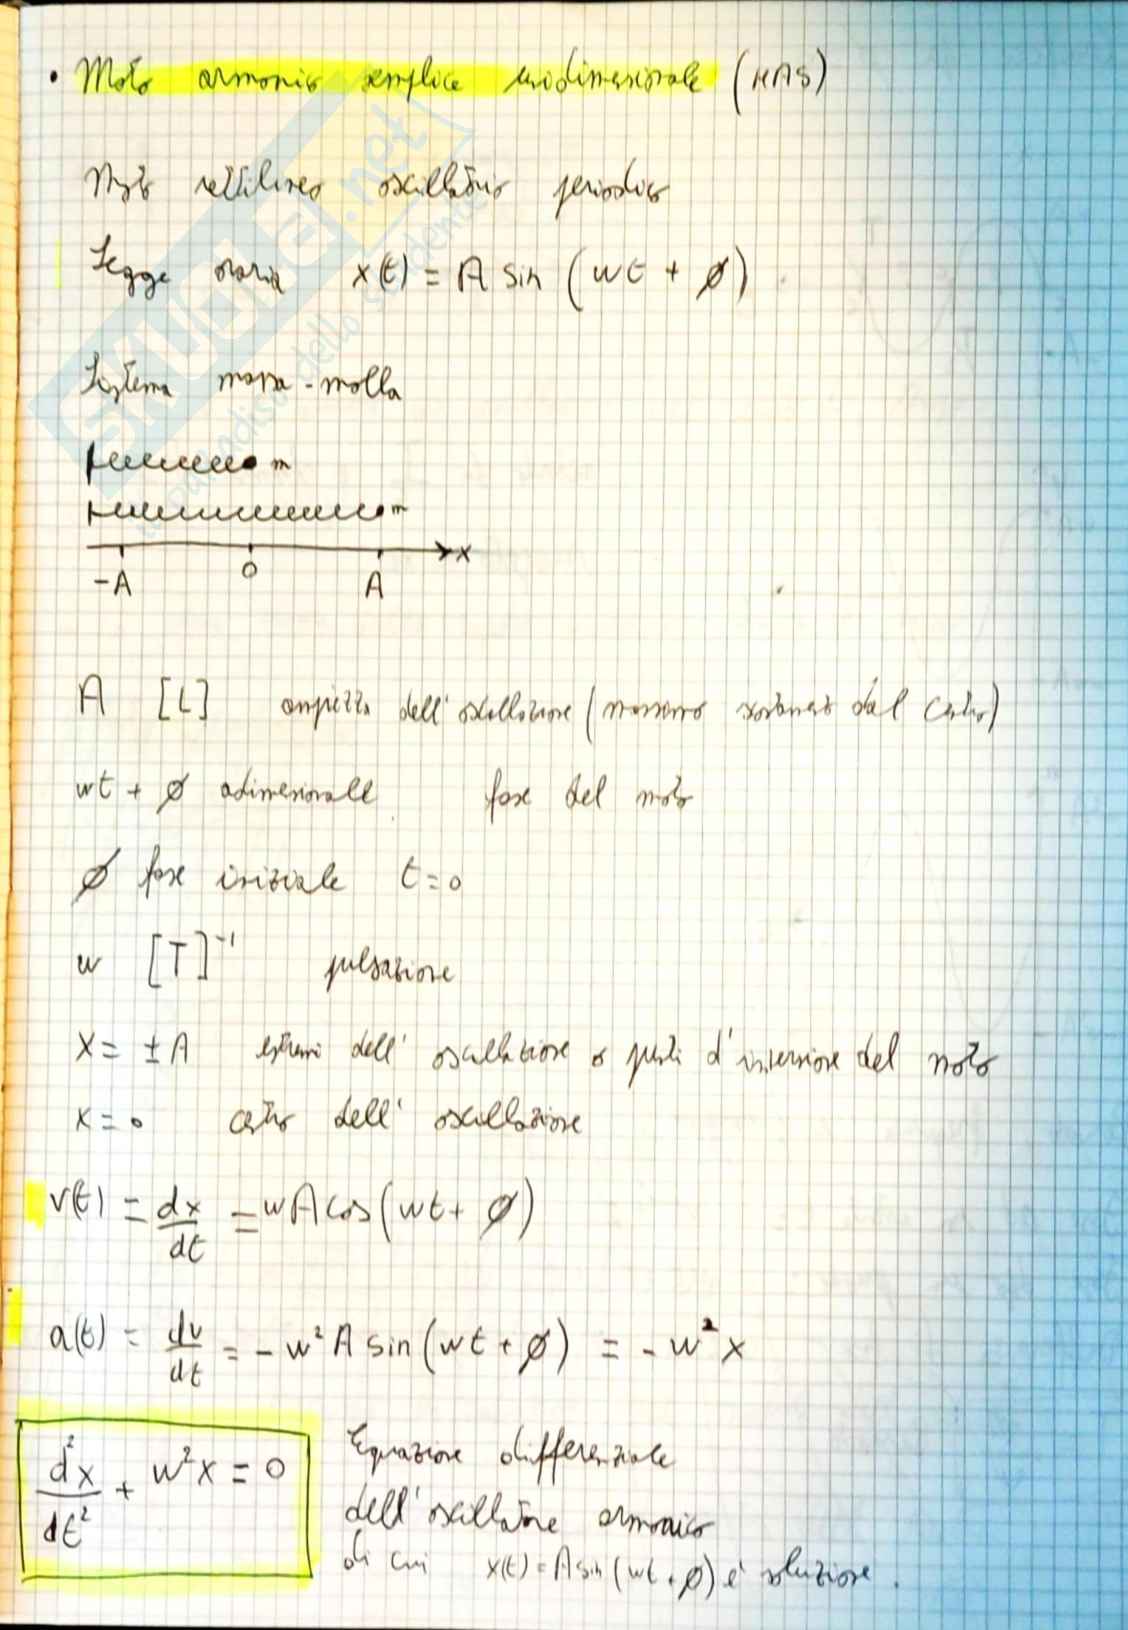 • Moto armonico semplice unidimensionale (MAS)
Moto rettilineo oscillatorio periodico
Legge oraria x(t) = A sin (wt + ϕ)
Sistema massa-molla
m
m
-A 0 A x
A [L] ampiezza dell'oscillazione (massimo spostamento dal centro)
wt + ϕ adimensionale fase del moto
ϕ fase iniziale t=0
w [T]⁻¹ pulsazione
x = ± A estremi dell'oscillazione o punti d'inversione del moto
x = 0 centro dell'oscillazione
v(t) = dx/dt = wA cos(wt + ϕ)
a(t) = dv/dt = -w² A sin(wt + ϕ) = -w² x
d²x/dt² + w²x = 0
Equazione differenziale
dell'oscillatore armonico
di cui x(t) = A sin (wt + ϕ) è soluzione.
SKUOLA.net
il paradiso dello studente